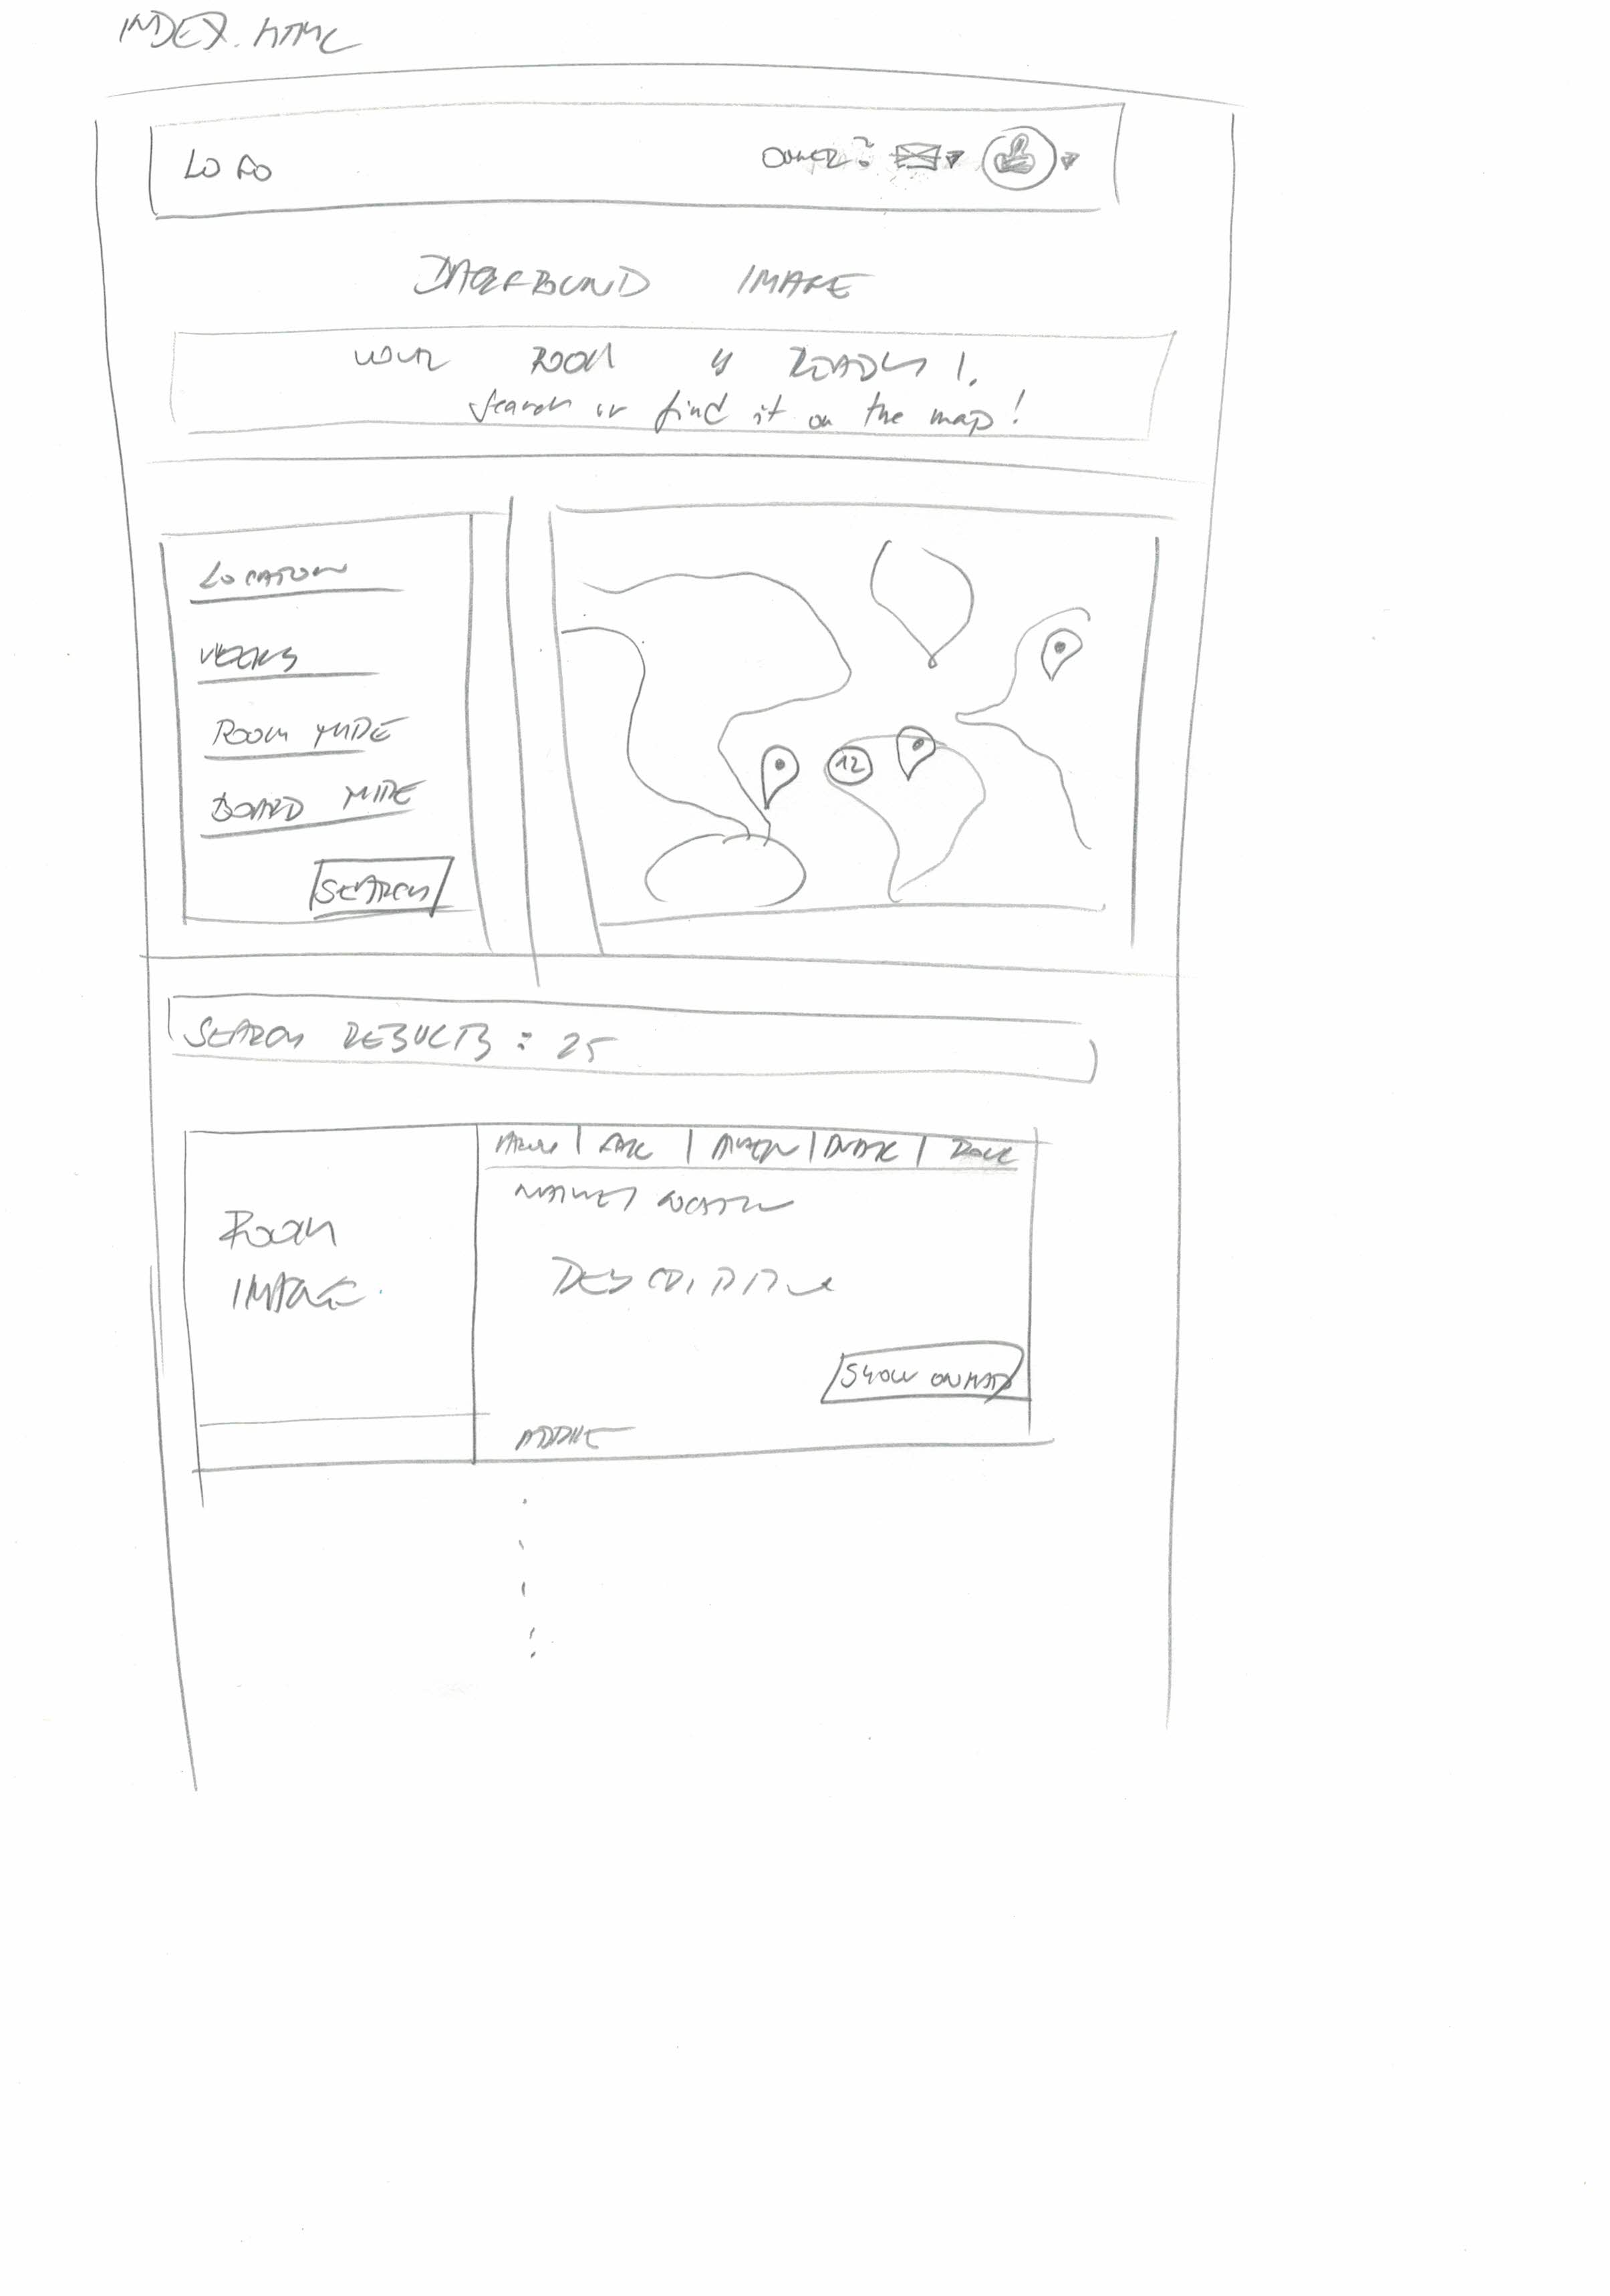 INDEX.HTML
LOGO
OWNER?
BACKGROUND IMAGE
YOUR ROOM IS READY!
Search or find it on the map!
LOCATION
WEEKS
ROOM TYPE
BOARD TYPE
SEARCH
12
SEARCH RESULTS: 25
ROOM
IMAGE
DESCRIPTION
SHOW ON MAP